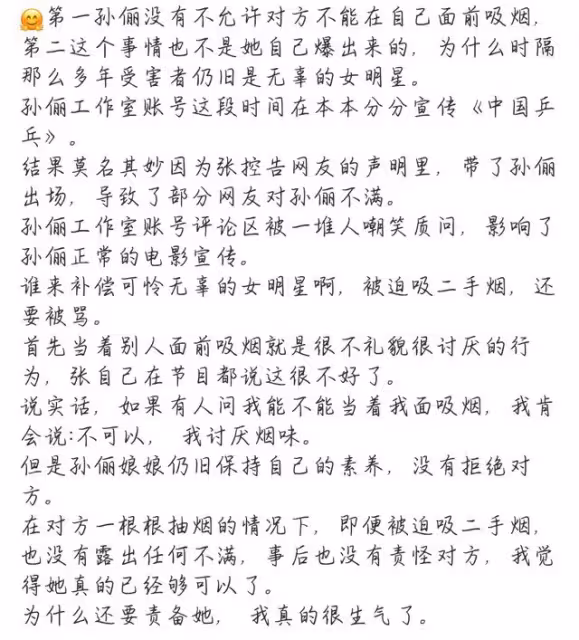 🤗第一孙俪没有不允许对方不能在自己面前吸烟,
第二这个事情也不是她自己爆出来的, 为什么时隔
那么多年受害者仍旧是无辜的女明星。
孙俪工作室账号这段时间在本本分分宣传《中国乒
乓》。
结果莫名其妙因为张控告网友的声明里, 带了孙俪
出场, 导致了部分网友对孙俪不满。
孙俪工作室账号评论区被一堆人嘲笑质问, 影响了
孙俪正常的电影宣传。
谁来补偿可怜无辜的女明星啊, 被迫吸二手烟, 还
要被骂。
首先当着别人面前吸烟就是很不礼貌很讨厌的行
为, 张自己在节目都说这很不好了。
说实话, 如果有人问我能不能当着我面吸烟, 我肯
会说:不可以, 我讨厌烟味。
但是孙俪娘娘仍旧保持自己的素养, 没有拒绝对
方。
在对方一根根抽烟的情况下, 即便被迫吸二手烟,
也没有露出任何不满, 事后也没有责怪对方, 我觉
得她真的已经够可以了。
为什么还要责备她, 我真的很生气了。